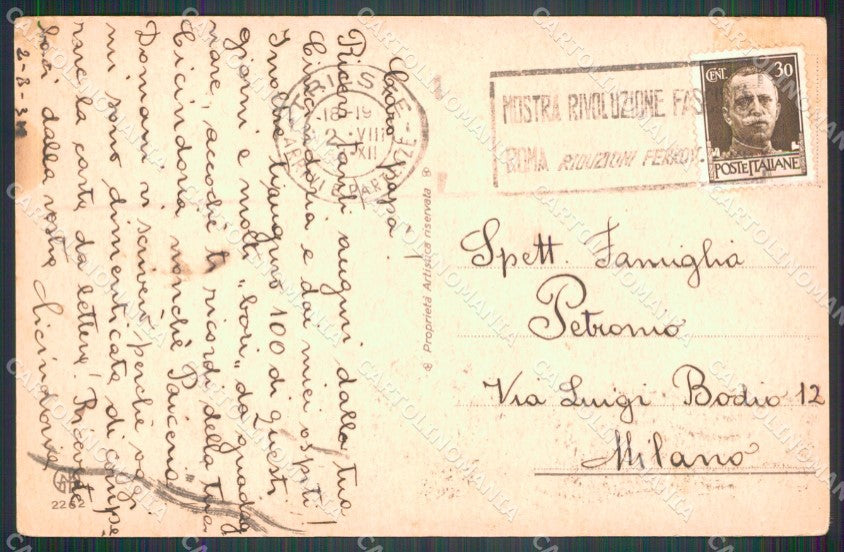 Caro Papà!
Ricevi tanti auguri dalla tua
Cicindoria e dai miei ospiti!
Inoltre ti auguro 100 di questi
giorni e molti "bori" da guadag
nare, acciochè ti ricordi della tua
Cicindoria nonchè
Domani vi scriverò perchè oggi
mi sono dimenticata di compe
rare la carta da lettere! Ricevete
baci dalla vostra Cicindoria
2-8-34
TRIESTE
18-19
2 VIII
XII
ARRIVI E PARTENZE
MOSTRA RIVOLUZIONE FAS
ROMA RIDUZIONI FERROV.
CENT. 30
POSTE ITALIANE
Proprietà Artistica riservata
Spett. Famiglia
Petromo
Via Luigi Bodio 12
Milano
2262
CARTOLINOMANIA